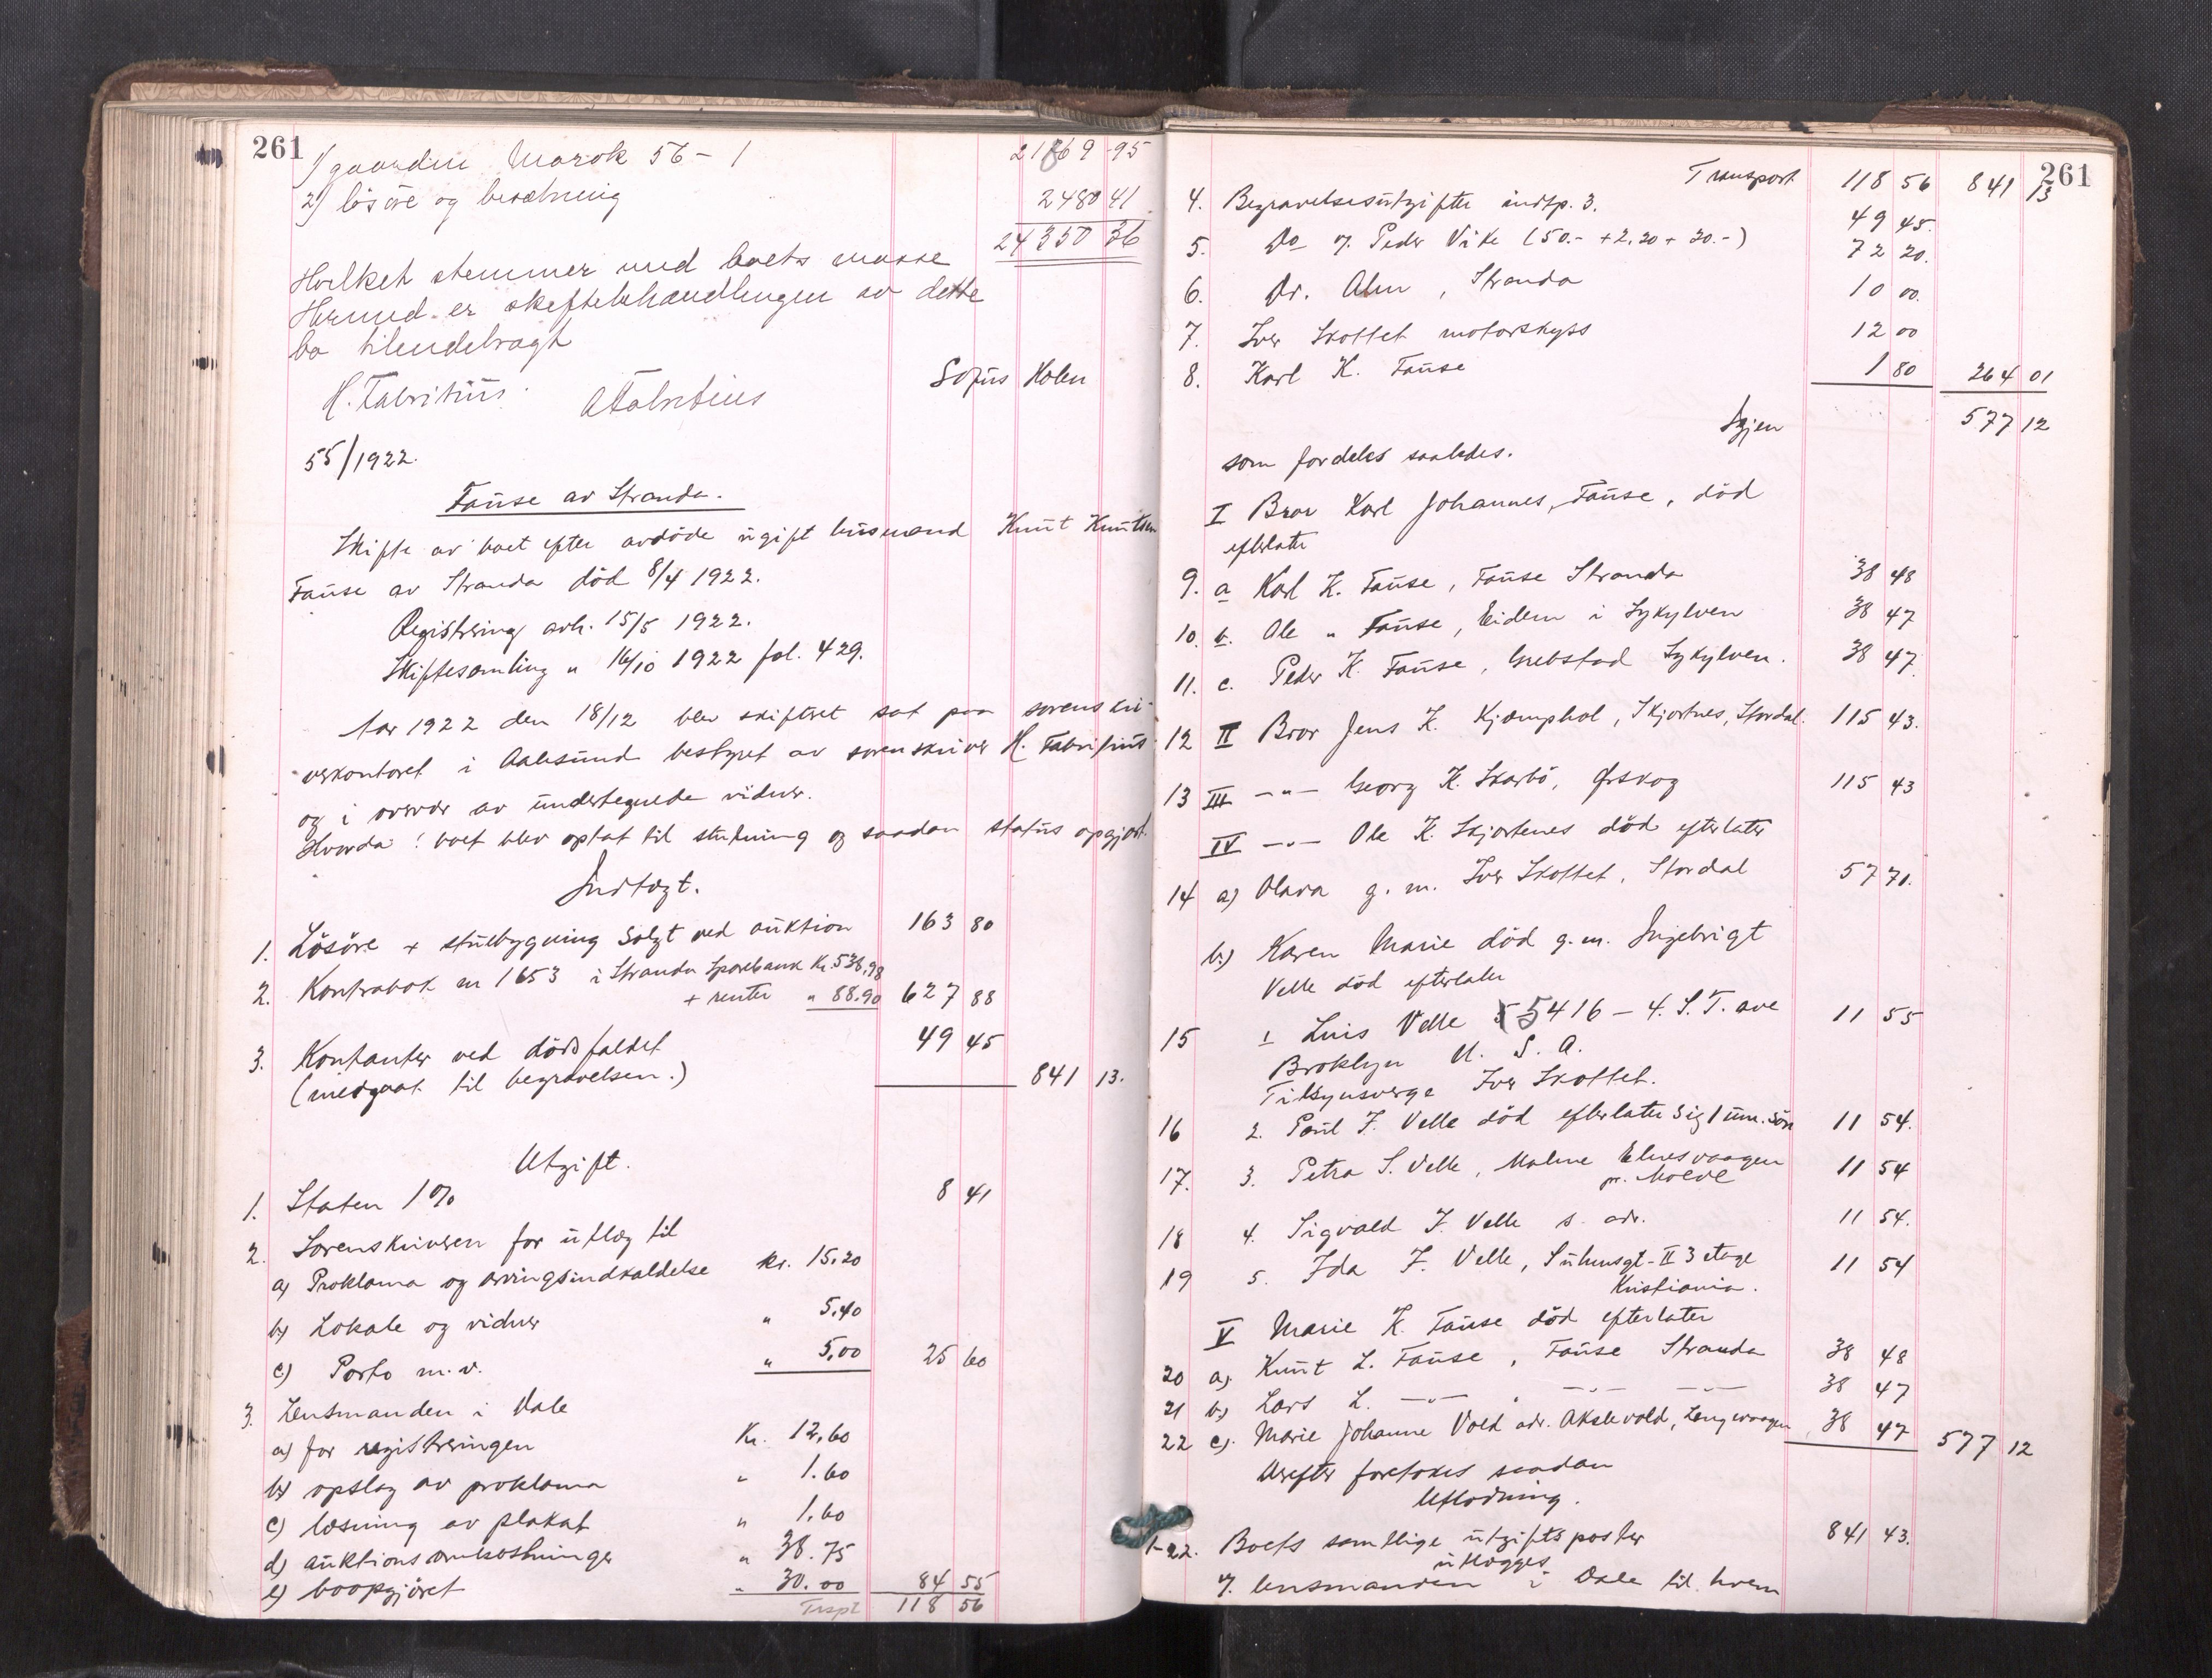 261
1) gaarden Marok 56 - 1 21869 95
2) lösöre og besætning 2480 41
24350 36
Hvilket stemmer med boets masse
Hermed er skiftebehandlingen av dette
bo tilendebragt
H. Fabritius AFabritius Sofus Holen
55/1922.
Fause av Stranda.
Skifte av boet efter avdöde ugift husmand Knut Knutsen
Fause av Stranda död 8/4 1922.
Registrering avh. 15/5 1922.
Skiftesamling " 16/10 1922 fol. 429.
Aar 1922 den 18/12 blev skifteret sat paa sorenskri-
verkontoret i Aalesund bestyret av sorenskriver H. Fabritius
og i overvær av undertegnede vidner.
Hvorda: boet blev optat til slutning og saadan status opgjort.
Indtægt.
1. Lösöre + stuebygning solgt ved auktion 163 80
2. Kontrabok nr 1653 i Stranda Sparebank Kr. 538,98
+ renter " 88.90 627 88
3. Kontanter ved dödsfaldet 49 45
(medgaat til begravelsen.) 841 13.
Utgift.
1. Staten 1% 8 41
2. Sorenskriveren for utlæg til
a) Proklama og arvingsindkaldelse kr. 15.20
b) Lokale og vidner " 5,40
c) Porto m.v. " 5,00 25 60
3. Lensmanden i Dale
a) for registreringen Kr. 12,60
b) opslag av proklama " 1.60
c) læsning av plakat " 1,60
d) auktionsomkostninger " 38.75
e) boopgjöret " 30.00 84 55
Trspt 118 56
261
Transport 118 56 841 13
4. Begravelsesutgifter indtp. 3. 49 45.
5. Do v. Peder Vike (50.- + 2.20 + 20.-) 72 20.
6. Dr. Alm, Stranda 10 00.
7. Iver Skottet motorskyss 12 00
8. Karl K. Fause 1 80 264 01
Igjen 577 12
som fordeles saaledes.
I Bror Karl Johannes, Fause, död
efterlater
9. a Karl K. Fause, Fause Stranda 38 48
10 b. Ole " Fause, Eidem i Sykylven 38 47
11. c. Peder K. Fause, Grebstad Sykylven. 38 47
12 II Bror Jens K. Kjæmphol, Skjortnes, Stordal. 115 43.
13 III -"- Georg K. Skarbö, Ørskog 115 43
IV -"- Ole K. Skjortenes död efterlater
14 a) Olava g. m. Iver Skottet, Stordal 57 71.
b.) Karen Marie död g. m. Ingebrigt
Velle död efterlater
15 1 Luis Velle 5416 - 4. S. T. ave 11 55
Broklyn U. S. A.
Tilsynsverge Iver Skottet.
16 2. Paul I. Velle död efterlater sig 1 um. sön 11 54.
17. 3. Petra I. Velle, Malme Elnesvaagen 11 54
pr. Molde
18 4. Sigvald I. Velle s. adr. 11 54.
19 5. Ida I. Velle, II 3 etage 11 54
Kristiania.
V Marie K. Fause död efterlater
20 a) Knut L. Fause, Fause Stranda 38 48
21 b) Lars L. -"- , -"- -"- 38 47
22 c) Marie Johanne Vold adr. Akslevold, Lengevaagen 38 47 577 12
Derefter foretoges saadan
Utlodning.
1-22. Boets samtlige utgiftsposter 841 43.
utlægges
v. lensmanden i Dale til hvem